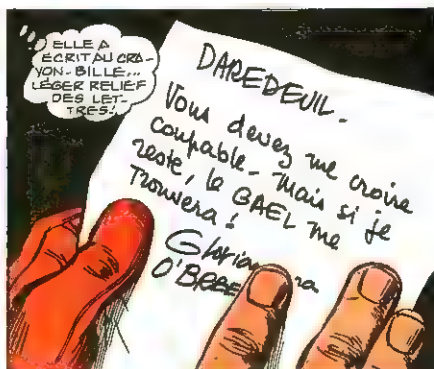 ELLE A
ÉCRIT AU CRA-
YON-BILLE...
LÉGER RELIEF
DES LET-
TRES!
DAREDEVIL.
Vous devez me croire
coupable - mais si je
reste, le GAEL me
trouvera !
Glorianna
O'BREE